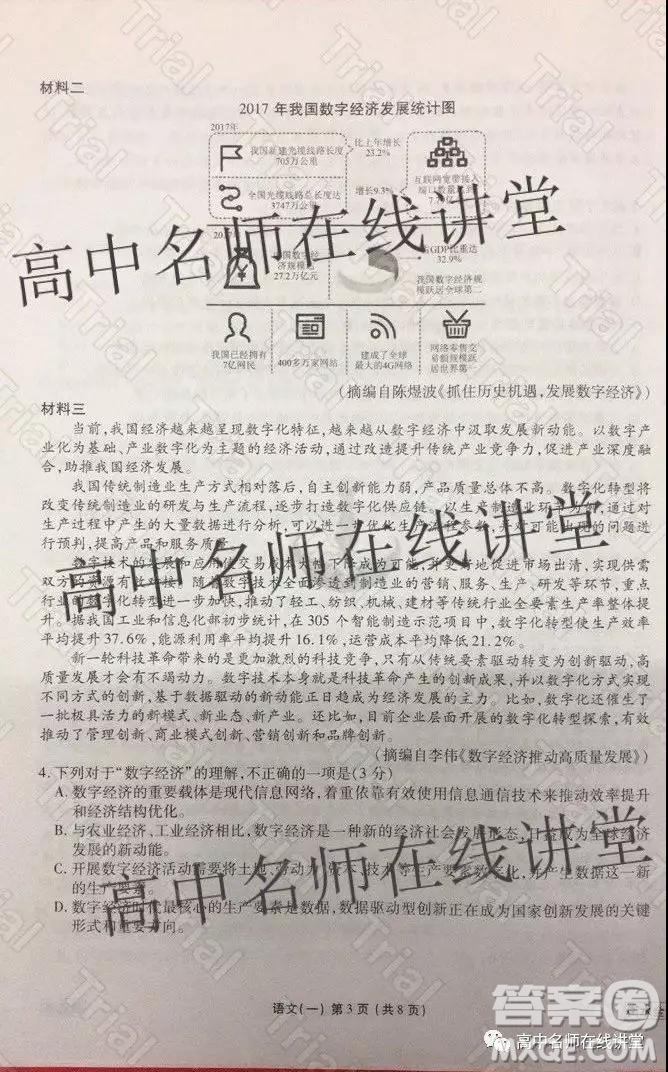 材料二
2017 年我国数字经济发展统计图
2017年
我国新建光缆线路长度
705万公里
比上年增长
23.2%
互联网宽带接入
端口数量
全国光缆线路总长度达
3747万公里
增长9.3%
27.2万亿元
GDP比重达
32.9%
我国数字经济规
模跃居全球第二
我国已经拥有
7亿网民
400多万家网站
建成了全球
最大的4G网络
网络零售交
易额规模跃
居世界第一
(摘编自陈煜波《抓住历史机遇,发展数字经济》)
材料三
当前,我国经济越来越呈现数字化特征,越来越从数字经济中汲取发展新动能。以数字产
业化为基础、产业数字化为主题的经济活动,通过改造提升传统产业竞争力,促进产业深度融
合,助推我国经济发展。
我国传统制造业生产方式相对落后,自主创新能力弱,产品质量总体不高。数字化转型将
改变传统制造业的研发与生产流程,逐步打造数字化供应链。以生产制造业环节为例,通过对
生产过程中产生的大量数据进行分析,可以进一步优化生产流程参数,并对可能出现的问题进
行预判,提高产品和服务质量。
数字技术的发展和应用使交易成本大幅下降成为可能,并更有地促进市场出清,实现供需
双方的资源有效对接。随着数字技术全面渗透到制造业的营销、服务、生产、研发等环节,重点
行业的数字化转型进一步加快,推动了轻工、纺织、机械、建材等传统行业全要素生产率整体提
升。据我国工业和信息化部初步统计,在 305 个智能制造示范项目中,数字化转型使生产效率
平均提升 37.6%,能源利用率平均提升 16.1%,运营成本平均降低 21.2%。
新一轮科技革命带来的是更加激烈的科技竞争,只有从传统要素驱动转变为创新驱动,高
质量发展才会有不竭动力。数字技术本身就是科技革命产生的创新成果,并以数字化方式实现
不同方式的创新,基于数据驱动的新动能正日趋成为经济发展的主力。比如,数字化还催生了
一批极具活力的新模式、新业态、新产业。还比如,目前企业层面开展的数字化转型探索,有效
推动了管理创新、商业模式创新、营销创新和品牌创新。
(摘编自李伟《数字经济推动高质量发展》)
4. 下列对于“数字经济”的理解,不正确的一项是(3 分)
A. 数字经济的重要载体是现代信息网络,着重依靠有效使用信息通信技术来推动效率提升
和经济结构优化。
B. 与农业经济、工业经济相比,数字经济是一种新的经济社会发展形态,日益成为全球经济
发展的新动能。
C. 开展数字经济活动需要将土地、劳动力、资本、技术等生产要素数字化,并产生数据这一新
的生产要素。
D. 数字经济时代最核心的生产要素是数据,数据驱动型创新正在成为国家创新发展的关键
形式和重要方向。
语文(一) 第 3 页 (共 8 页)
高中名师在线讲堂
高中名师在线讲堂
高中名师在线讲堂
高中名师在线讲堂
答案圈
MXQE.COM
Trial